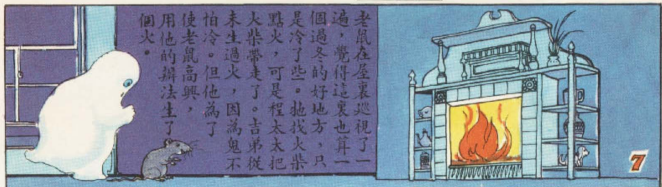 老鼠在屋裏巡視了一
遍，覺得這裏也算一
個過冬的好地方，只
是冷了些。牠找火柴
點火，可是程太太把
火柴帶走了。吉弟從
未生過火，因為鬼不
怕冷。但他為了
使老鼠高興，
用他的辦法生了
個火。
7